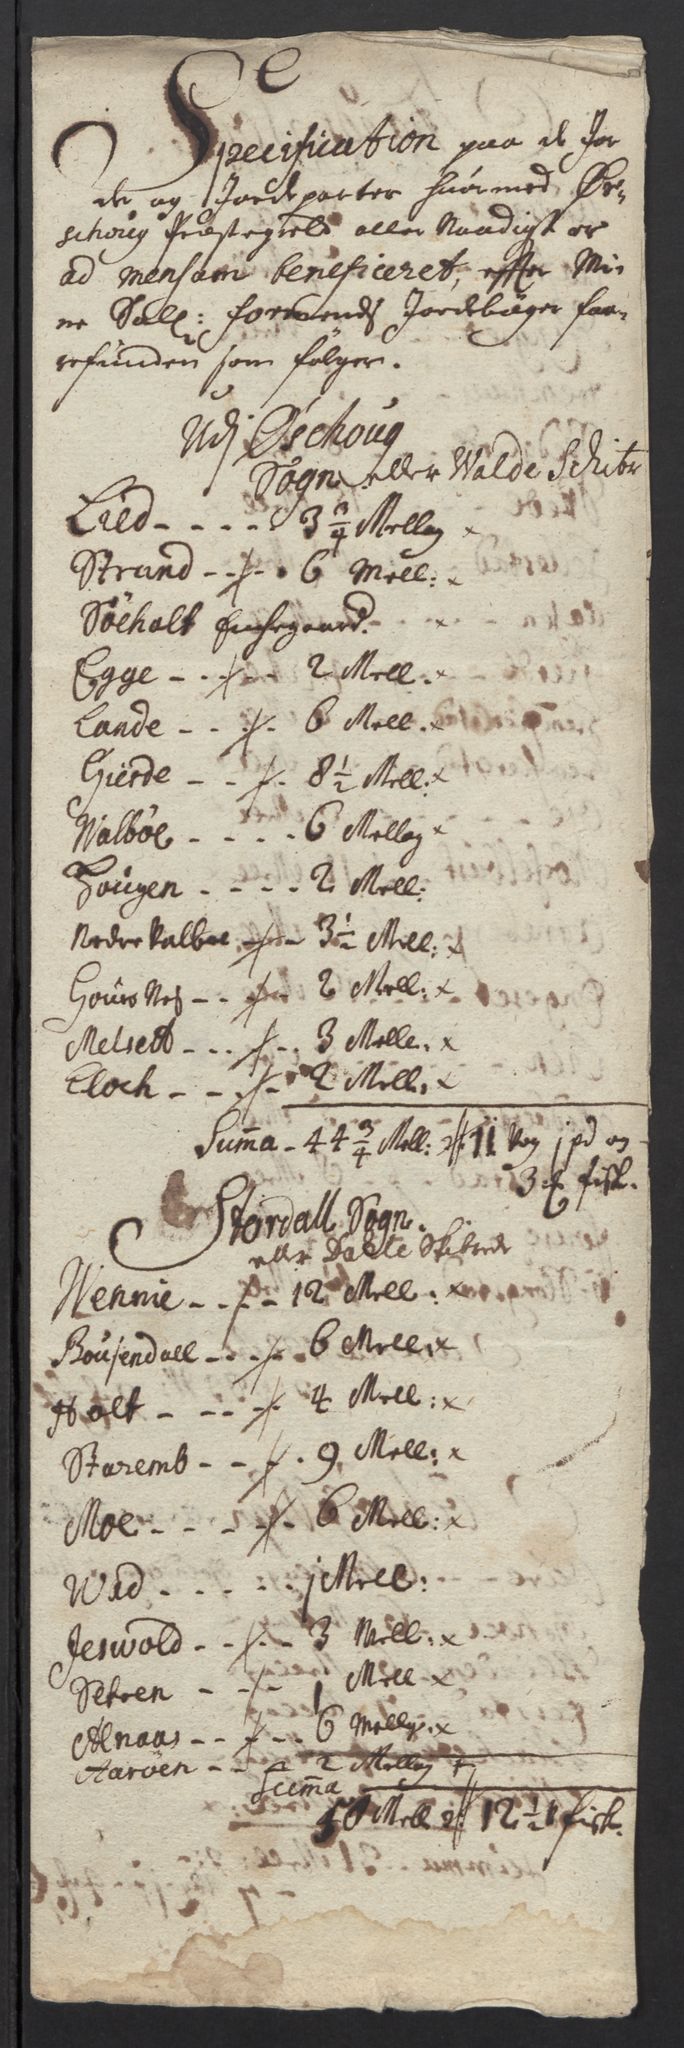 Specification paa de Jor
de og Jordeparter huormed Ør-
schoug Præstegield aller Naadigst er
ad mensam beneficeret, effter Mi
ne Sall: formends Jordebøger faa-
refunden som følger.
Udj Øschoug
Sogn eller Walde Schibr
Lied - - - - - 3 3/4 Mellag x
Strand - - - - 6 Mell: x
Søeholt Enchegaard. x
Egge - - - - - 2 Mell. x
Lande - - - - 6 Mell. x
Gierde - - - - 8 1/2 Mell: x
Walbøe - - - - 6 Mellag x
Hougen - - - - 2 Mell:
Nedre Valboe - - - 3 1/2 Mell: x
Gouis Nes - - - - 2 Mell: x
Melsett - - - - - 3 Melle. x
Cloch - - - - - 2 Mell. x
Summa - 44 3/4 Mell: er 11 Vog 1 pd og
3 fisk.
Stordall Sogn.
eller Dahle Skibrede
Wennie - - - - 12 Mell: x
Bousendall - - - - 6 Mell: x
Holt - - - - - 4 Mell: x
Staremb - - - - 9 Mell: x
Moe - - - - - 6 Mell: x
Wad - - - - - j Mell:
Jeswold - - - - 3 Mell: x
Setren - - - - 1 Mell x
Alnaas - - - - 6 Mellg: x
Aarøen - - - - 2 Mellag x
Summa
50 Mell er 12 1/2 fisk.